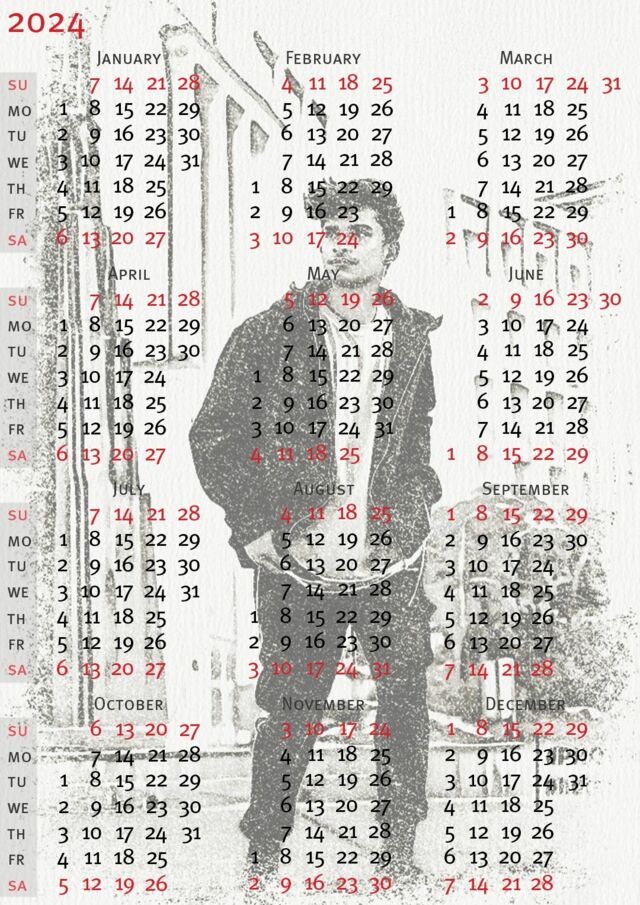 2024
JANUARY FEBRUARY MARCH
SU 7 14 21 28 4 11 18 25 3 10 17 24 31
MO 1 8 15 22 29 5 12 19 26 4 11 18 25
TU 2 9 16 23 30 6 13 20 27 5 12 19 26
WE 3 10 17 24 31 7 14 21 28 6 13 20 27
TH 4 11 18 25 1 8 15 22 29 7 14 21 28
FR 5 12 19 26 2 9 16 23 1 8 15 22 29
SA 6 13 20 27 3 10 17 24 2 9 16 23 30
APRIL MAY JUNE
SU 7 14 21 28 5 12 19 26 2 9 16 23 30
MO 1 8 15 22 29 6 13 20 27 3 10 17 24
TU 2 9 16 23 30 7 14 21 28 4 11 18 25
WE 3 10 17 24 1 8 15 22 29 5 12 19 26
TH 4 11 18 25 2 9 16 23 30 6 13 20 27
FR 5 12 19 26 3 10 17 24 31 7 14 21 28
SA 6 13 20 27 4 11 18 25 1 8 15 22 29
JULY AUGUST SEPTEMBER
SU 7 14 21 28 4 11 18 25 1 8 15 22 29
MO 1 8 15 22 29 5 12 19 26 2 9 16 23 30
TU 2 9 16 23 30 6 13 20 27 3 10 17 24
WE 3 10 17 24 31 7 14 21 28 4 11 18 25
TH 4 11 18 25 1 8 15 22 29 5 12 19 26
FR 5 12 19 26 2 9 16 23 30 6 13 20 27
SA 6 13 20 27 3 10 17 24 31 7 14 21 28
OCTOBER NOVEMBER DECEMBER
SU 6 13 20 27 3 10 17 24 1 8 15 22 29
MO 7 14 21 28 4 11 18 25 2 9 16 23 30
TU 1 8 15 22 29 5 12 19 26 3 10 17 24 31
WE 2 9 16 23 30 6 13 20 27 4 11 18 25
TH 3 10 17 24 31 7 14 21 28 5 12 19 26
FR 4 11 18 25 1 8 15 22 29 6 13 20 27
SA 5 12 19 26 2 9 16 23 30 7 14 21 28